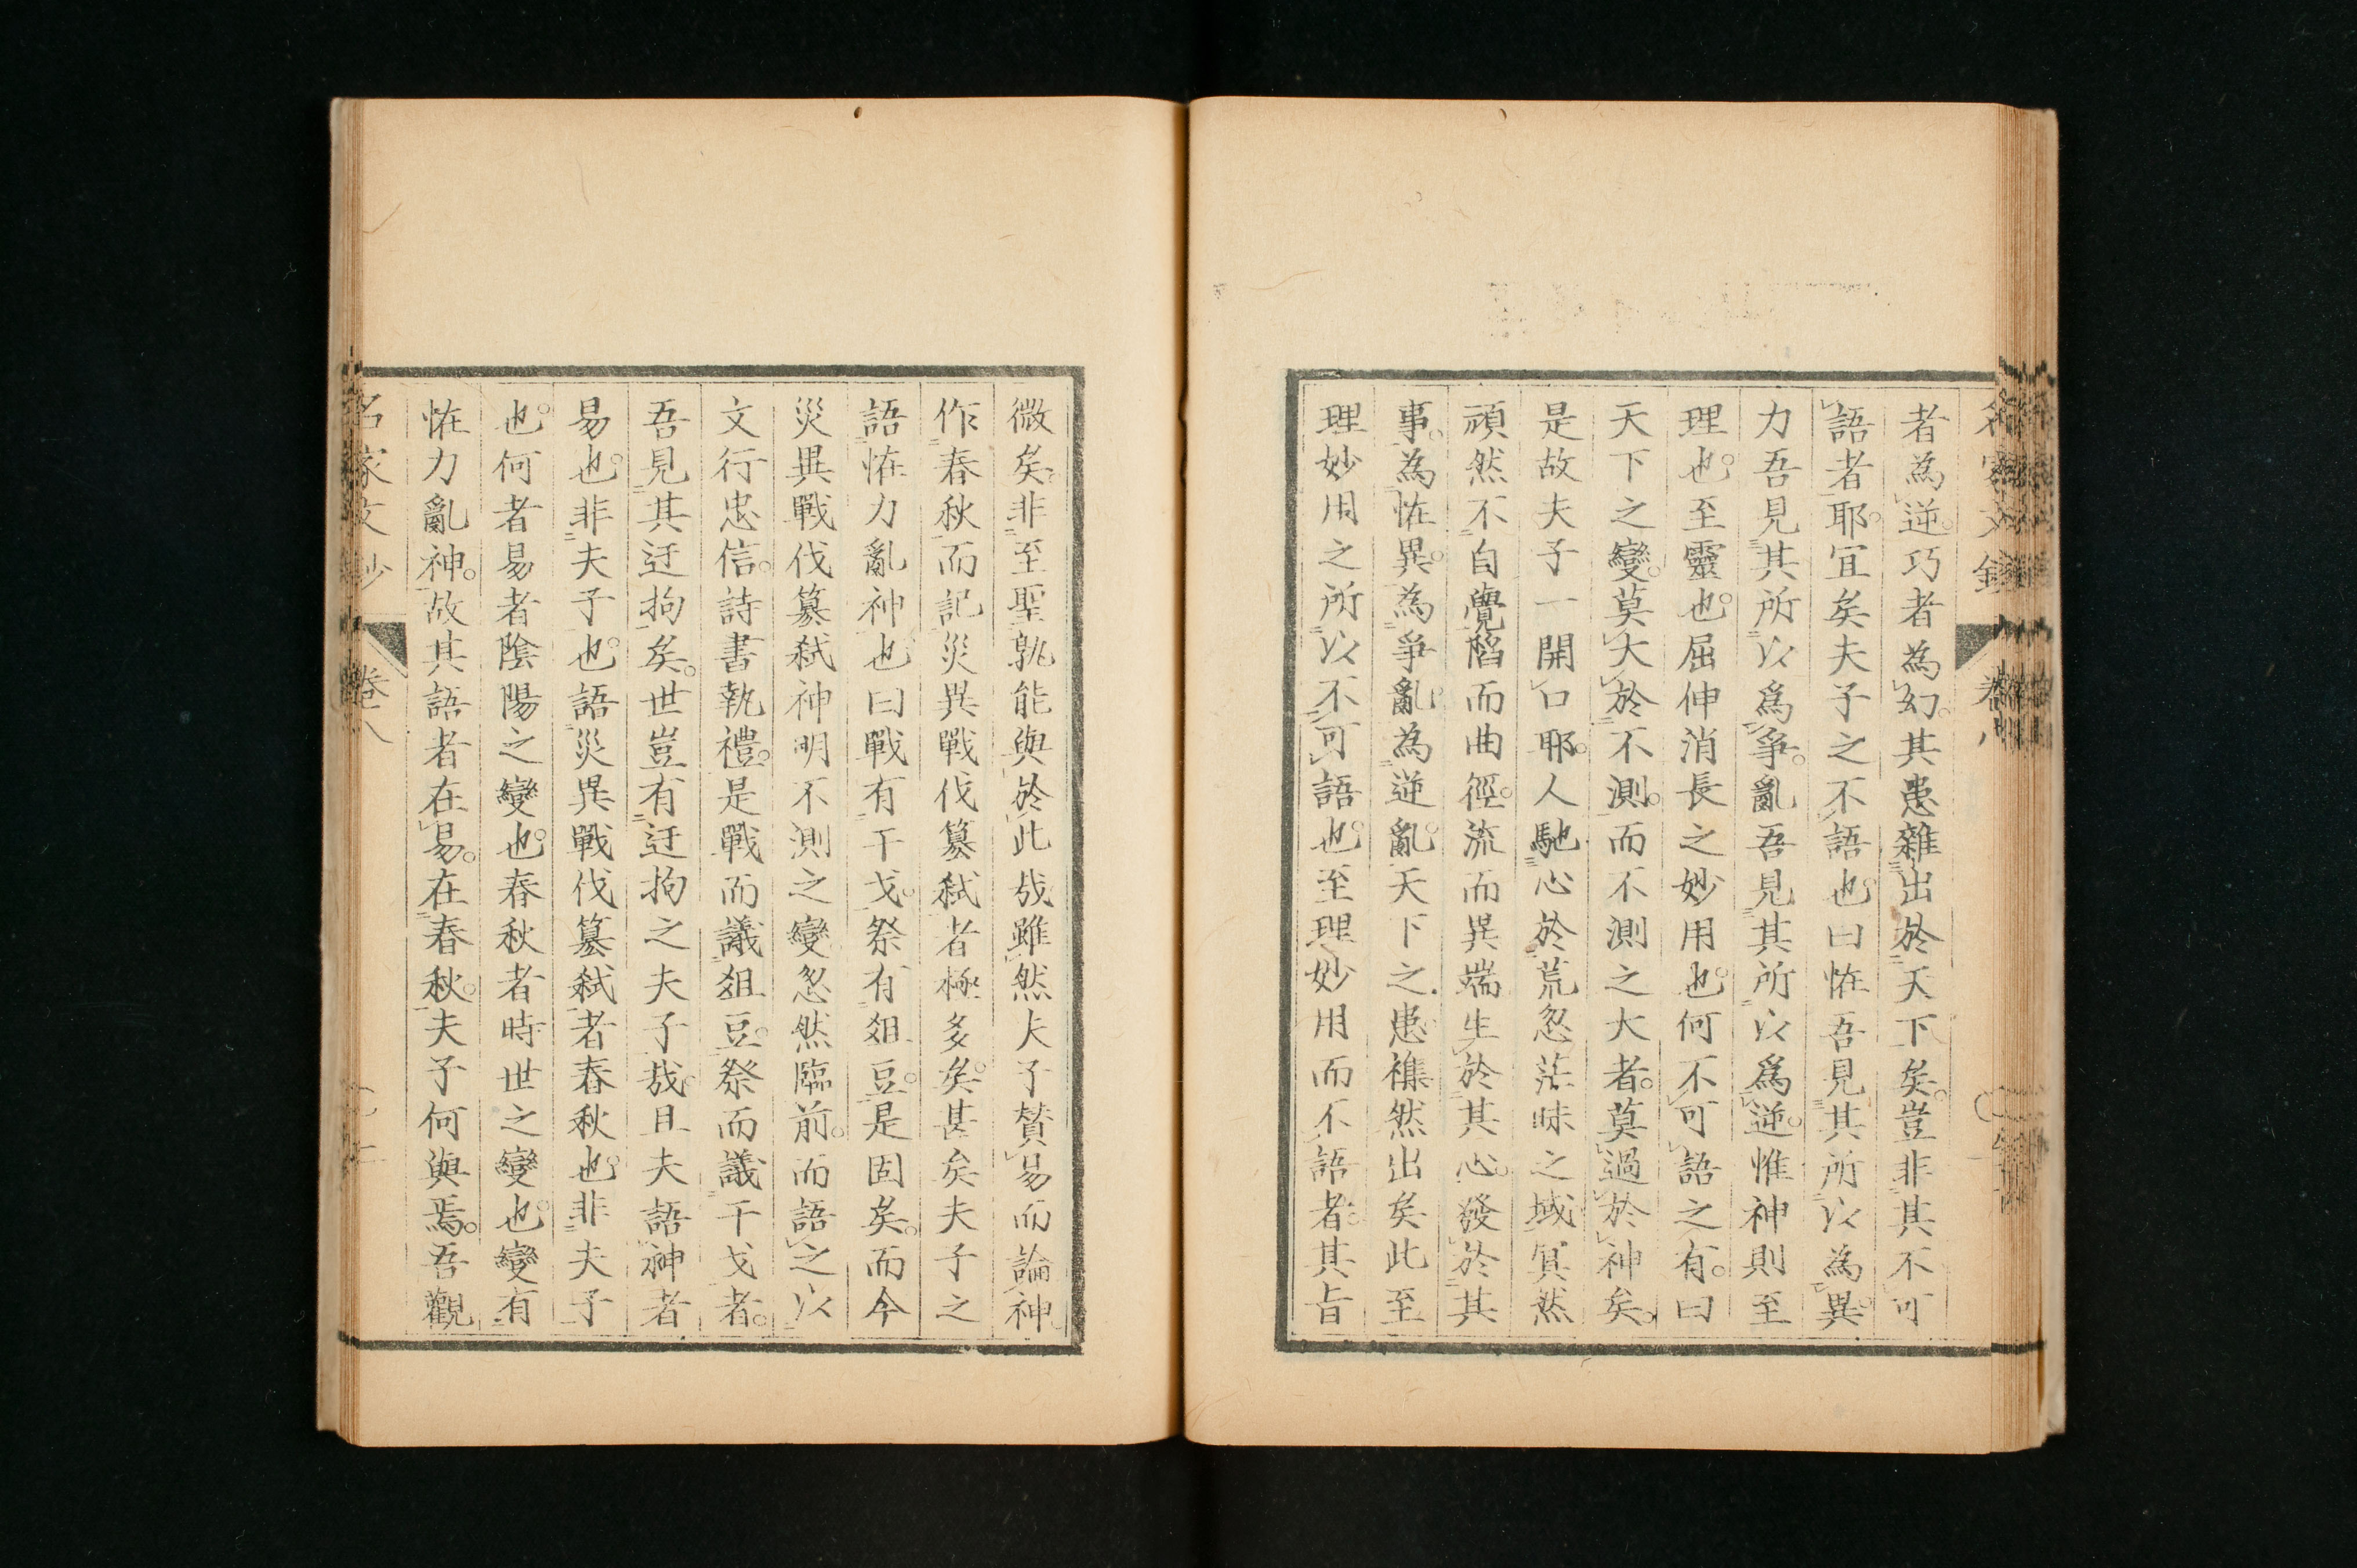 者為逆。巧者為幻。其患雜出於天下矣。豈非其不可
語者耶。宜矣夫子之不語也。曰恠吾見其所以為異。
力吾見其所以爲爭。亂吾見其所以爲逆。惟神則至
理也。至靈也。屈伸消長之妙用也。何不可語之有。曰
天下之變。莫大於不測。而不測之大者。莫過於神矣。
是故夫子一開口耶。人馳心於荒忽茫昧之域冥然
頑然不自覺。䧟而曲徑。流而異端生於其心。發於其
事。為恠異。為爭亂。為逆亂。天下之患襍然出矣此至
理妙用之所以不可語也。至理妙用而不語者。其旨
微矣。非至聖孰能與於此哉雖然夫子賛易而論神
作春秋而記災異戰伐簒弑者極多矣。甚矣夫子之
語恠力亂神也曰戰有干戈。祭有俎豆。是固矣。而今
災異戰伐簒弑神明不測之變忽然臨前。而語之以
文行忠信。詩書執禮。是戰而議俎豆。祭而議干戈者。
吾見其迂拘矣。世豈有迂拘之夫子哉。且夫語神者
易也。非夫子也。語災異戰伐簒弑者春秋也。非夫子
也。何者易者陰陽之變也。春秋者時世之變也。變有
恠力亂神。故其語者在易。在春秋。夫子何與焉。吾觀
名家文抄 卷八